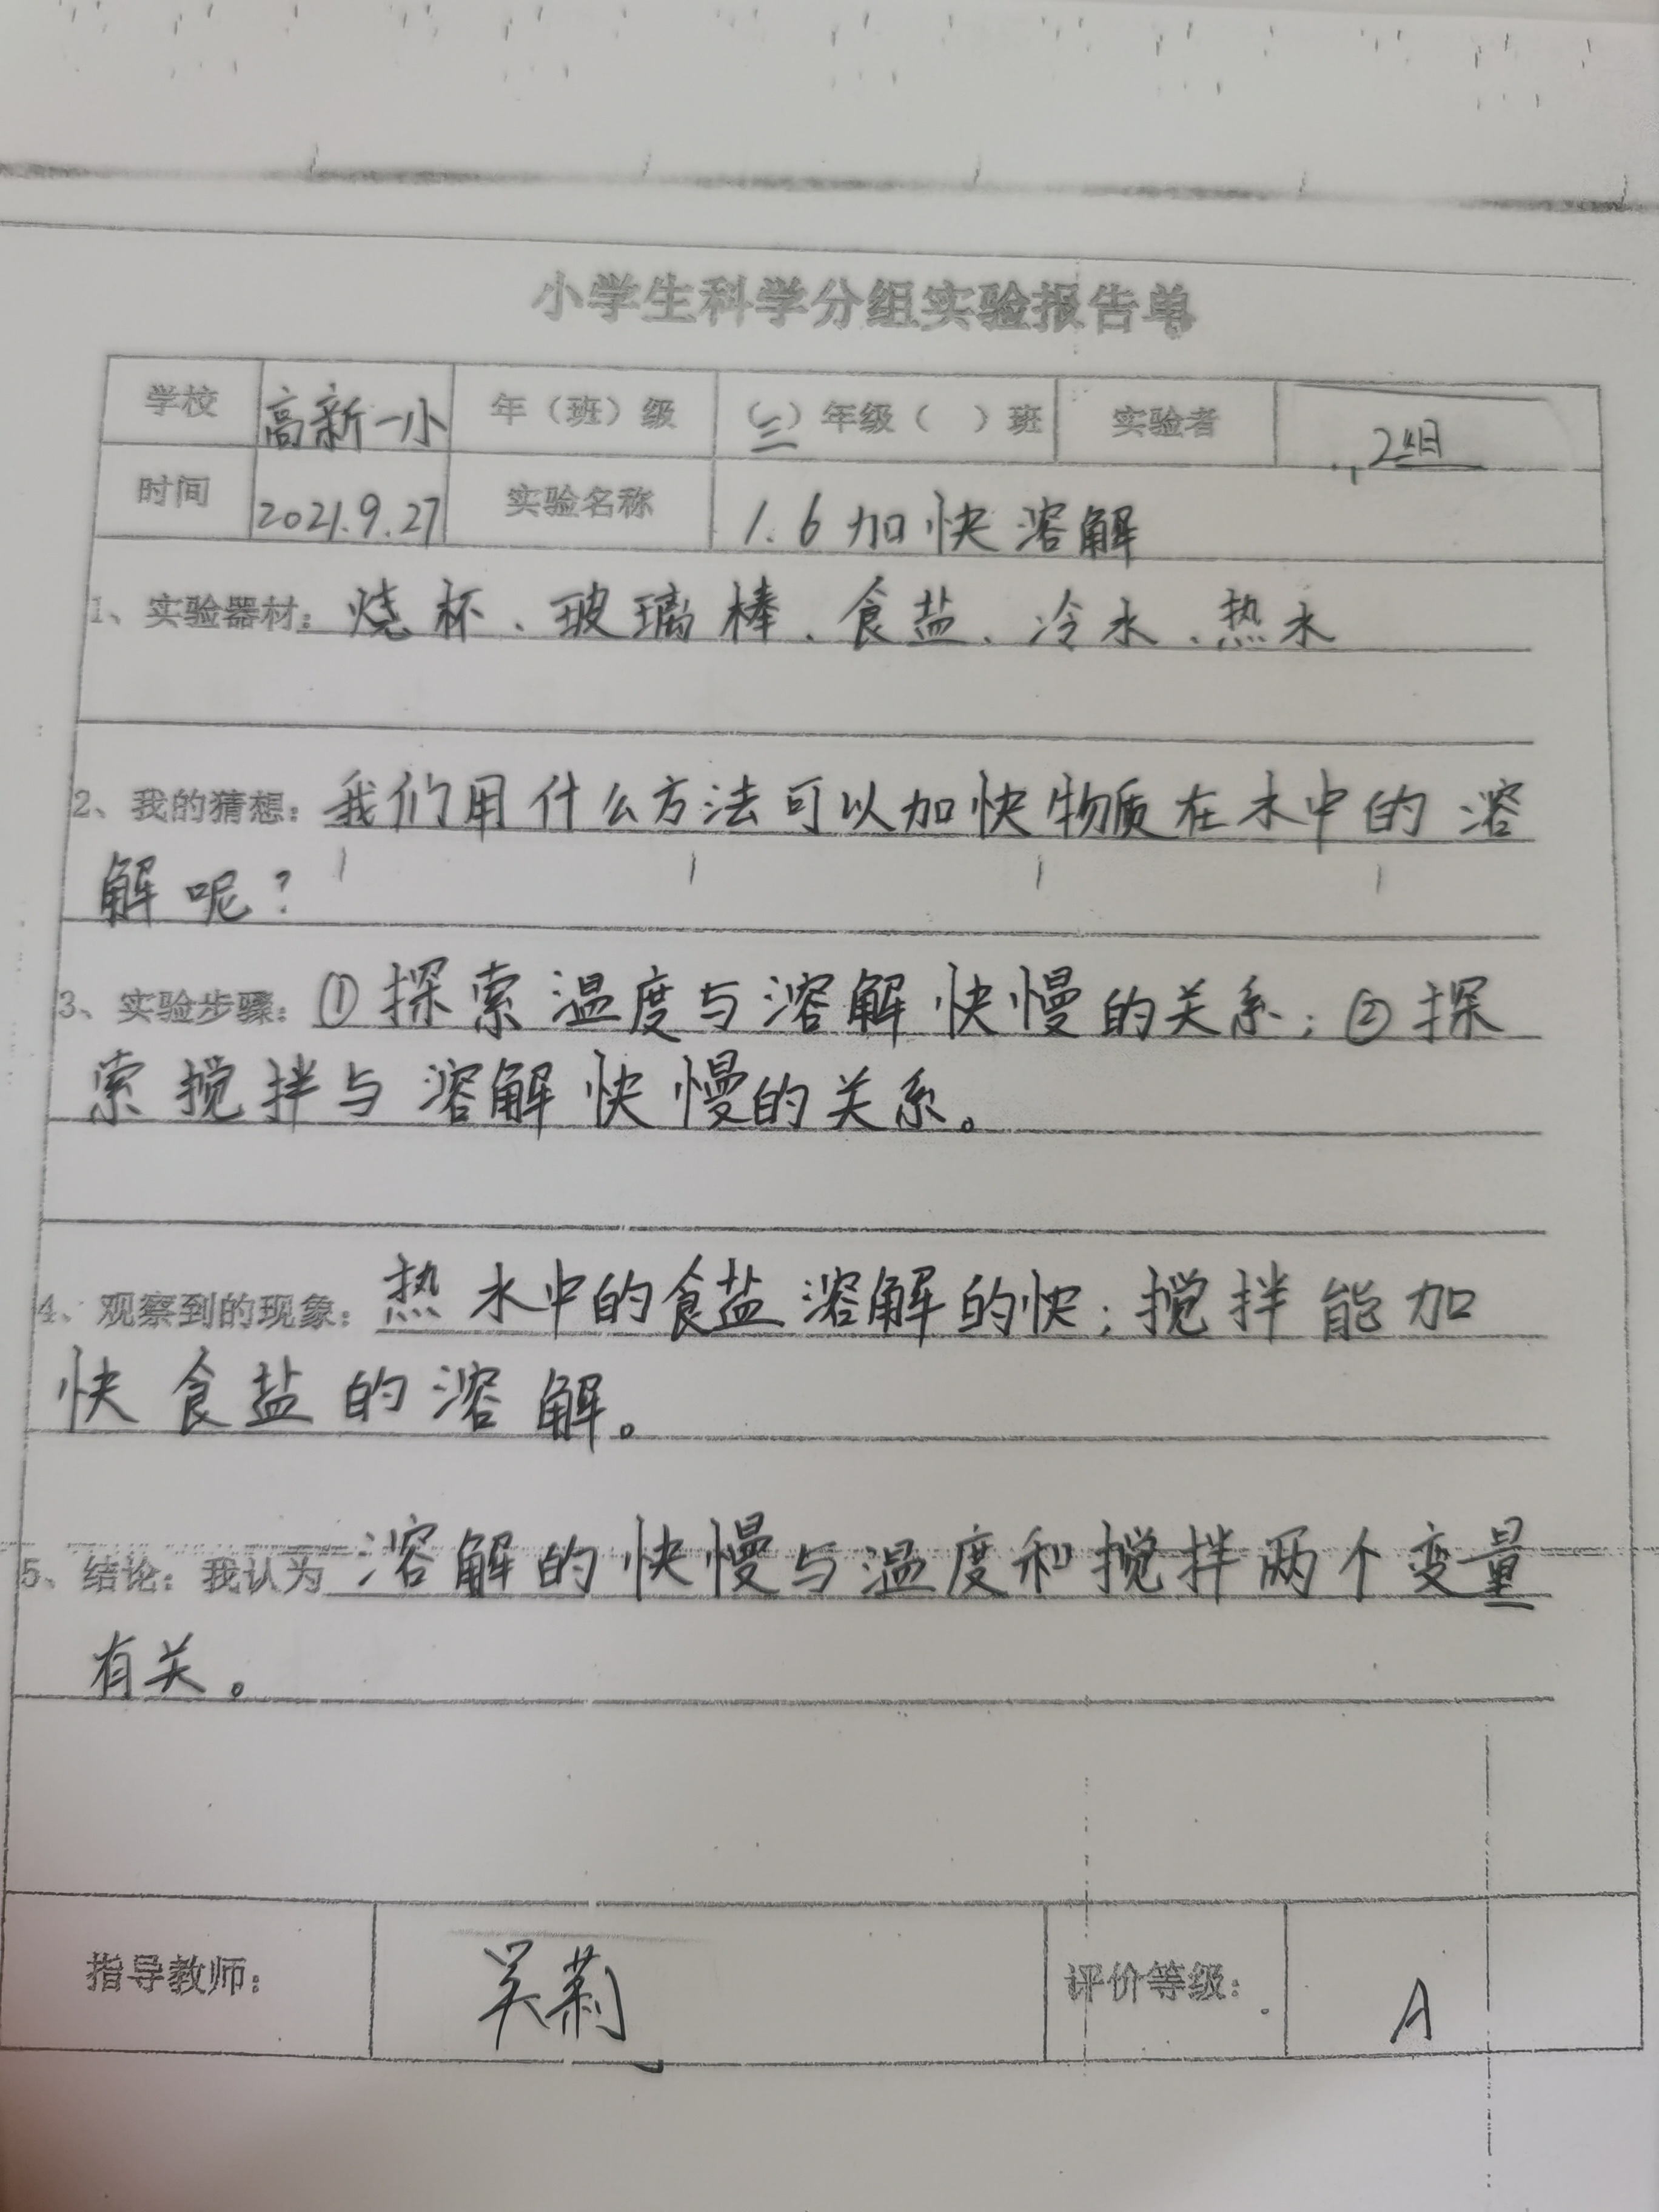 小学生科学分组实验报告单
学校 高新一小 年（班）级 （三）年级（ ）班 实验者 2组
时间 2021.9.27 实验名称 1.6 加快溶解
1、实验器材：烧杯、玻璃棒、食盐、冷水、热水
2、我的猜想：我们用什么方法可以加快物质在水中的溶
解呢？
3、实验步骤：①探索温度与溶解快慢的关系；②探
索搅拌与溶解快慢的关系。
4、观察到的现象：热水中的食盐溶解的快；搅拌能加
快食盐的溶解。
5、结论：我认为 溶解的快慢与温度和搅拌两个变量
有关。
指导教师： 吴莉 评价等级： A